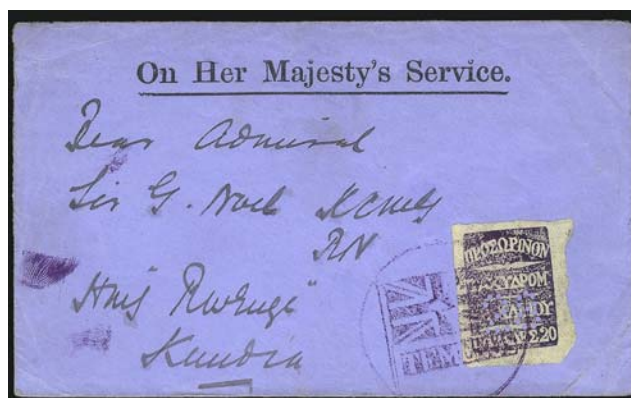 On Her Majesty's Service.
Rear Admiral
Sir G. Noel KCMG
RN
HMS Revenge
Kandia
ΠΡΟΣΩΡΙΝΟΝ
20